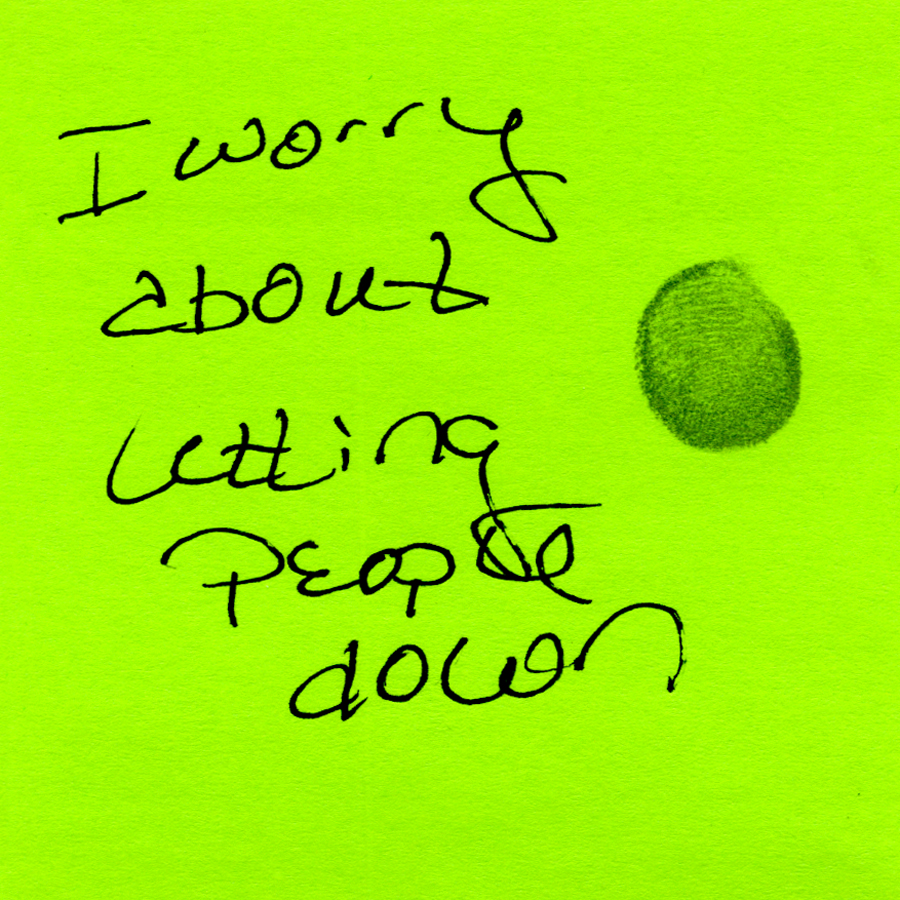 I worry
about
letting
people
down